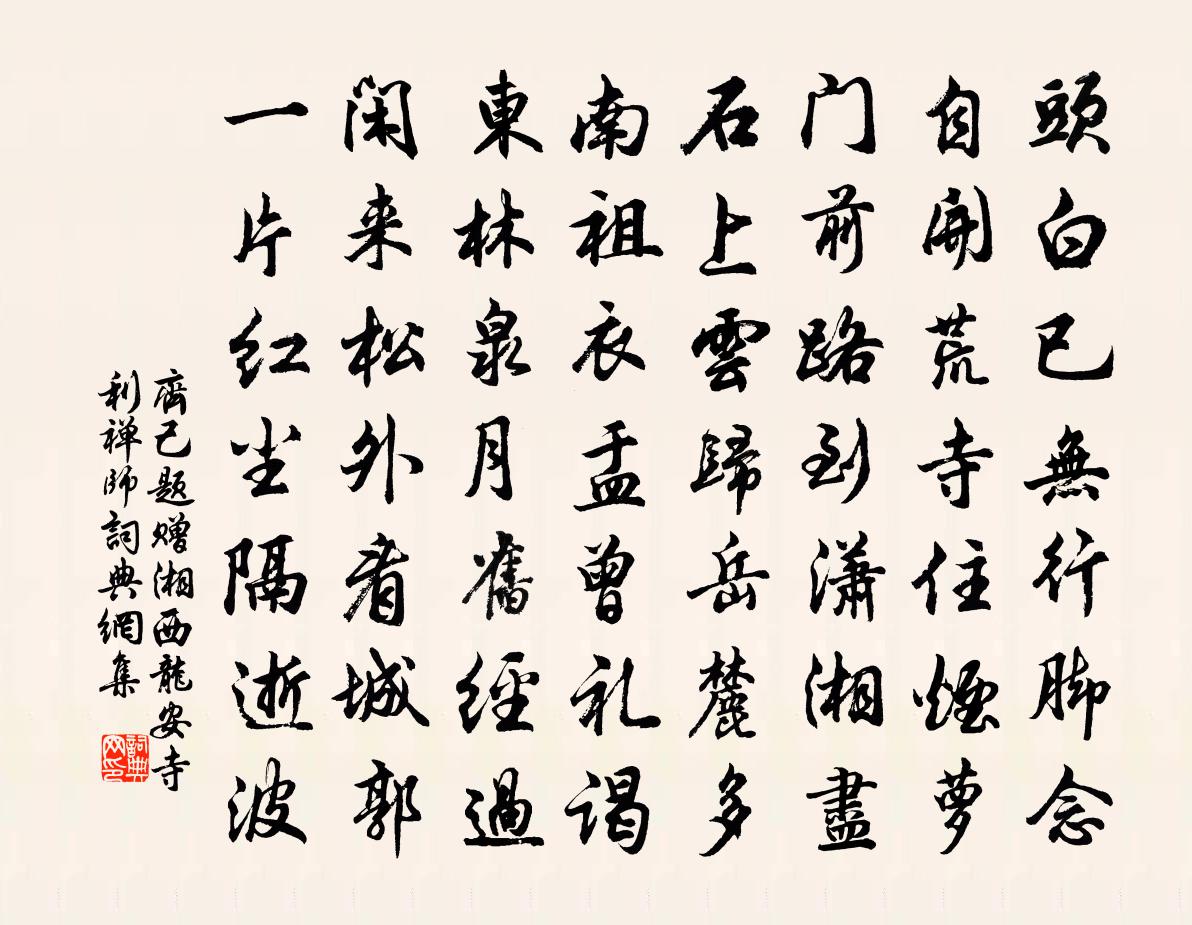 頭白已無行脚念
自開荒寺住煙萝
门前路到瀟湘盡
石上雲歸岳麓多
南祖衣盂曾礼谒
東林泉月舊經過
閑来松外看城郭
一片红尘隔逝波
齊己题赠湘西龍安寺
利禅師詞典網集
詞典网印